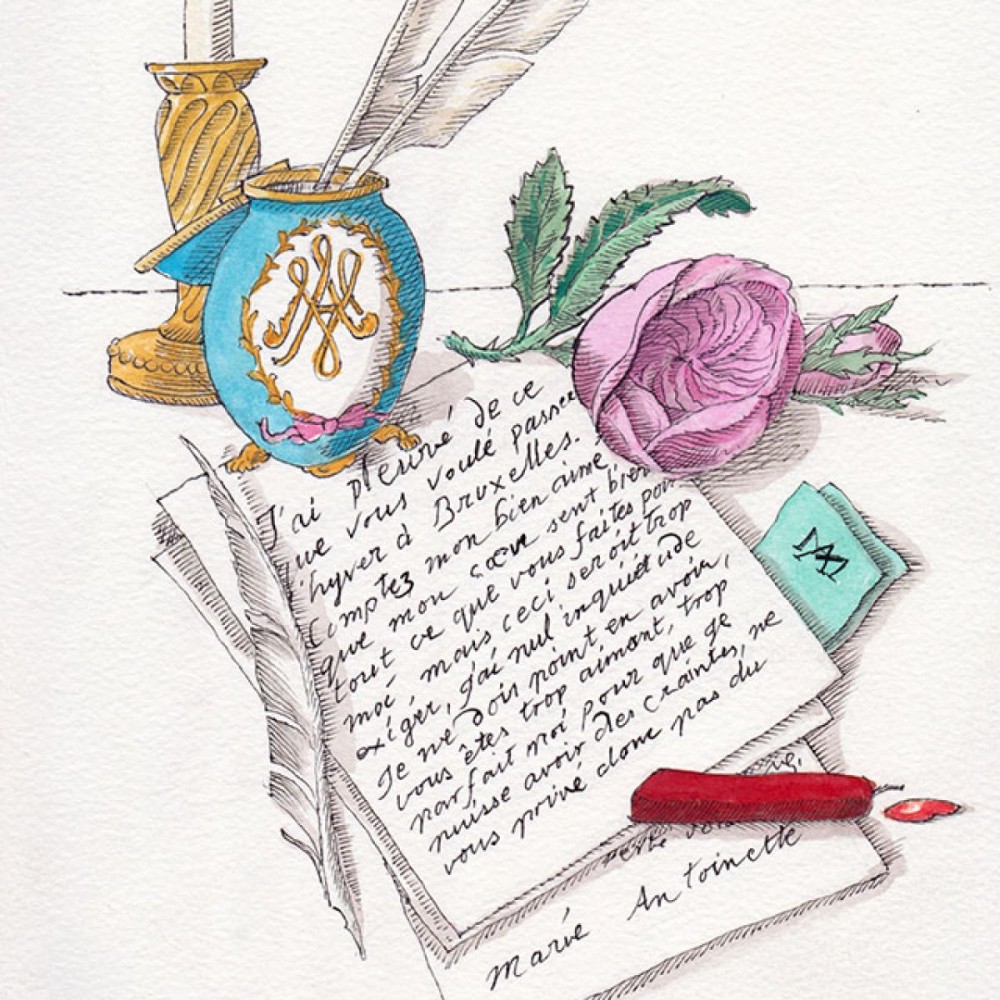 J'ai pleuré de ce
que vous voulé passer
l'hyver à Bruxelles.
Comptez mon bien aimé
que mon cœur sent bien
tout ce que vous faites pour
moé, mais ceci seroit trop
exiger, j'ai nul inquiétude
Je ne dois point en avoir,
vous êtes trop aimant, trop
parfait moi pour que je
puisse avoir des craintes, ne
vous privé donc pas du
Marie Antoinette
MA
MA